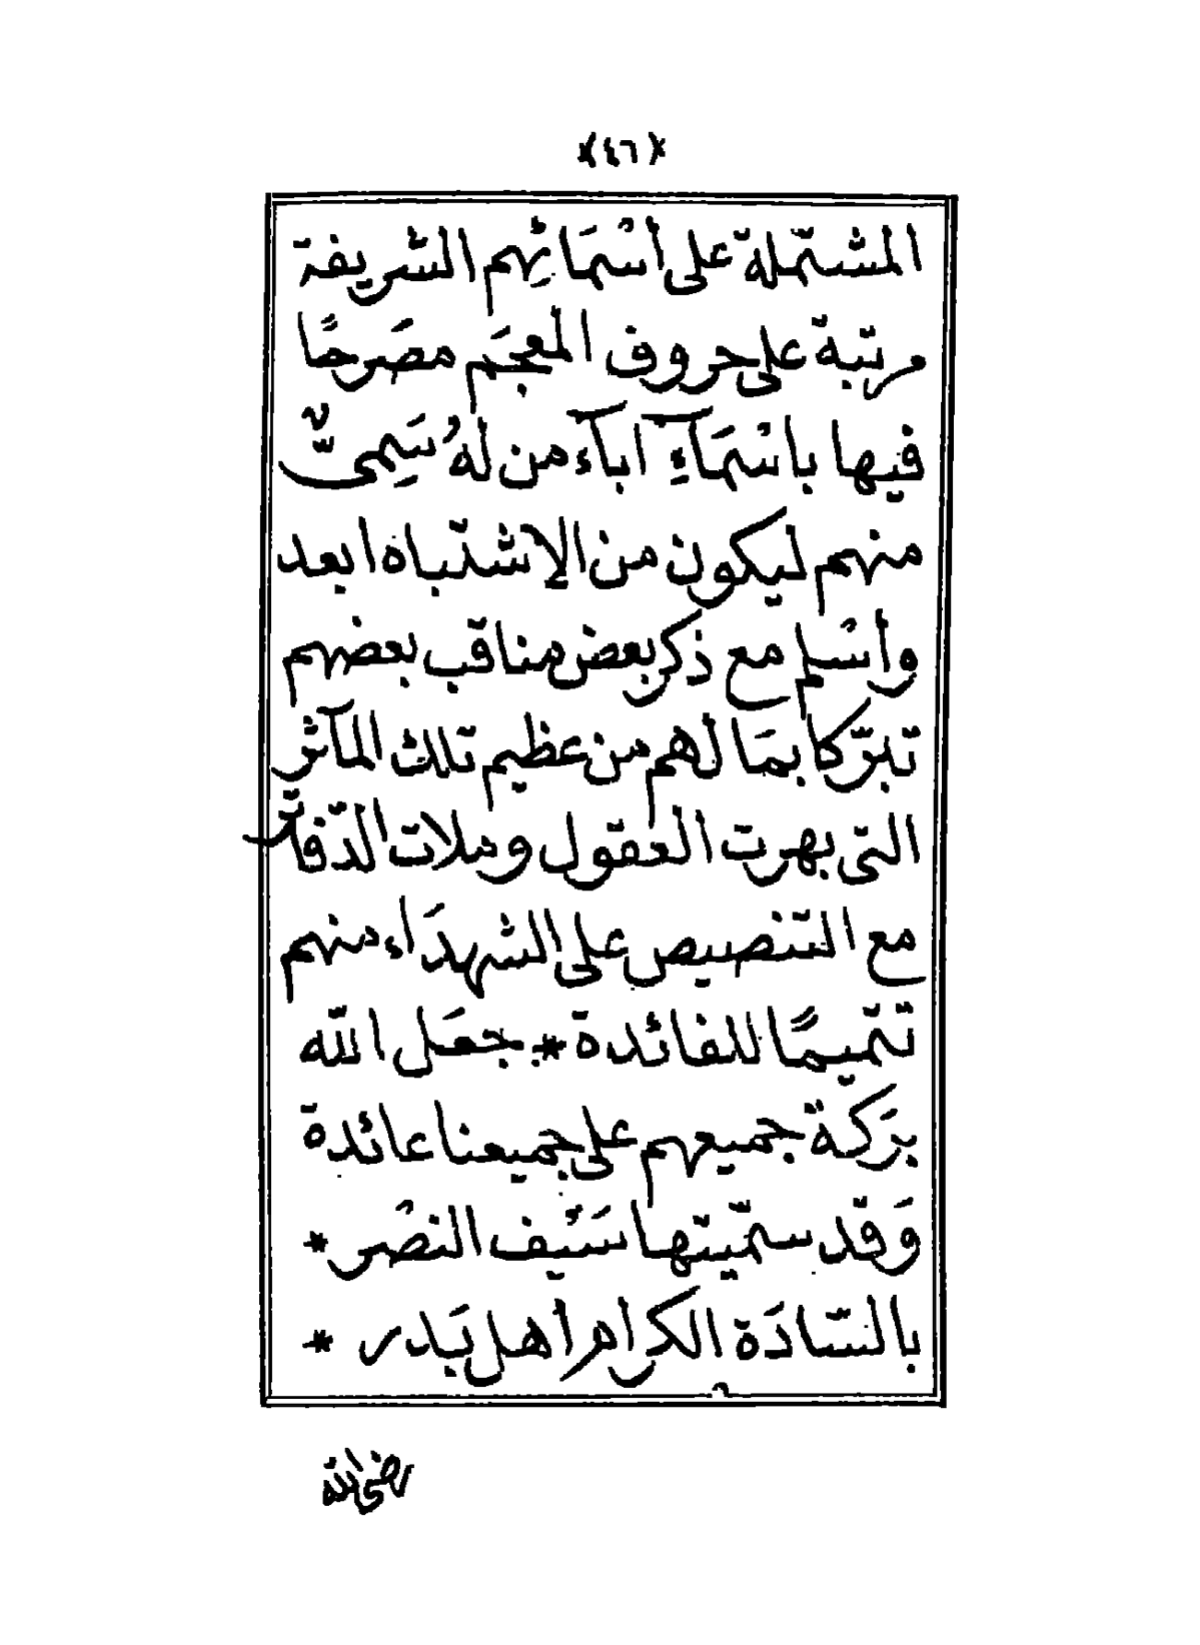 ﴿٤٦﴾
المشتملة على أسْمَائِهم الشريفة
مرتبة على حروف المعجَم مصَرحًا
فيها باسْمَآءِ اٰبآء من لهُ سَمِىٌّ
منهم ليكون من الاشتباه ابعد
وأسْلم مع ذكر بعض مناقب بعضهم
تبرّكا بمَا لهم من عظيم تلك المآثر
التى بهرت العقول وملات الدّفاتر
مع التنصيص على الشهدَاء منهم
تتميمًا للفائدة * جعَل الله
برَكة جميعهم على جميعنا عائدة
وَقد سمّيتها سَيْف النصْر *
بالسّادَة الكرام أهل بَدر *
رضى الله